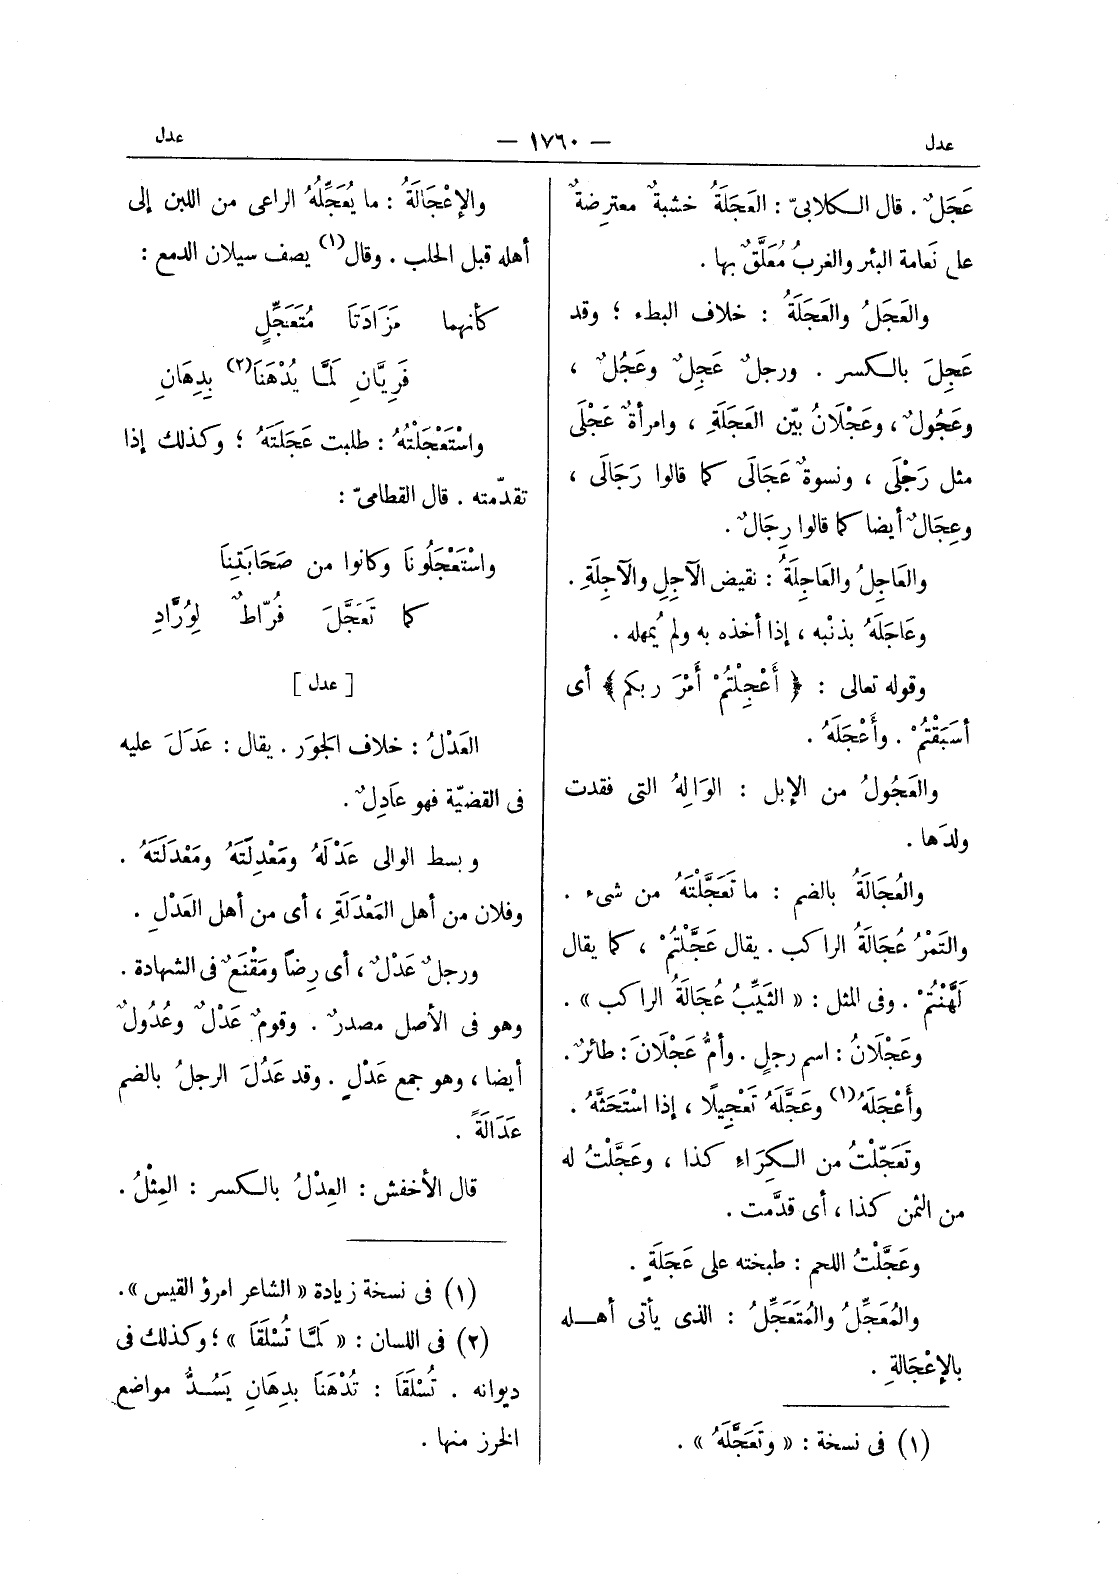 عدل — ١٧٦٠ — عدل
عَجَلٌ . قال الكلابىّ : العَجَلَةُ خشبةٌ معترِضةٌ
على نَعامة البئر والغربُ مُعَلَّقٌ بها .
والعَجَلُ والعَجَلَةُ : خلاف البطء ؛ وقد
عَجِلَ بالكسر . ورجلٌ عَجِلٌ وعَجُلٌ ،
وعَجُولٌ ، وعَجْلَانُ بيّن العَجَلَةِ ، وامرأةٌ عَجْلَى
مثل رَجْلَى ، ونسوةٌ عَجَالَى كما قالوا رَجَالَى ،
وعِجَالٌ أيضا كما قالوا رِجَالٌ .
والعَاجِلُ والعَاجِلَةُ : نقيض الآجِلِ والآجِلَةِ .
وعَاجَلَهُ بذنْبه ، إذا أخذه به ولم يُمهله .
وقوله تعالى : ﴿ أَعْجِلْتُمْ أَمْرَ ربكم ﴾ أى
أسَبَقْتُمْ . وأَعْجَلَهُ .
والعَجُولُ من الإبل : الوَالِهُ التى فقدت
ولدَها .
والعُجَالَةُ بالضم : ما تَعَجَّلْتَهُ من شىء .
والتَمْرُ عُجَالَةُ الراكب . يقال عَجَّلْتُمْ ، كما يقال
لَهَّنْتُمْ . وفى المثل : « الثَيِّبُ عُجَالَةُ الراكب » .
وعَجْلَانُ : اسم رجلٍ . وأمُّ عَجْلَانَ : طائرٌ .
وأَعْجَلَهُ (١) وعَجَّلَهُ تَعْجِيلًا ، إذا اسْتَحَثَّهُ .
وتَعَجّلْتُ من الكِرَاءِ كذا ، وعَجَّلْتُ له
من الثمن كذا ، أى قدَّمت .
وعَجَّلْتُ اللحم : طبخته على عَجَلَةٍ .
والمُعَجِّلُ والمُتَعَجِّلُ : الذى يأتى أهله
بالإعْجَالةِ .
(١) فى نسخة : « وتَعَجَّلَهُ » .
والإعْجَالَةُ : ما يُعَجِّلُهُ الراعى من اللبن إلى
أهله قبل الحلب . وقال (١) يصف سيلان الدمع :
كأنهما مَزَادَتَا مُتَعَجِّلٍ
فَرِيَّانِ لَمَّا يُدْهَنَا (٢) بِدِهَانِ
واسْتَعْجَلْتُهُ : طلبت عَجَلَتَهُ ؛ وكذلك إذا
تقدّمته . قال القطامىّ :
واسْتَعْجَلُونَا وكانوا من صَحَابَتِنَا
كما تَعَجَّلَ فُرّاطٌ لِوُرَّادِ
[ عدل ]
العَدْلُ : خلاف الجَوْر . يقال : عَدَلَ عليه
فى القضيّة فهو عَادِلٌ .
وبسط الوالى عَدْلَهُ ومَعْدِلَتَهُ ومَعْدَلَتَهُ .
وفلان من أهل المَعْدَلَةِ ، أى من أهل العَدْلِ .
ورجلٌ عَدْلٌ ، أى رِضاً ومَقْنَعٌ فى الشهادة .
وهو فى الأصل مصدرٌ . وقومٌ عَدْلٌ وعُدُولٌ
أيضا ، وهو جمع عَدْلٍ . وقد عَدُلَ الرجلُ بالضم
عَدَالَةً .
قال الأخفش : العِدْلُ بالكسر : المِثْلُ .
(١) فى نسخة زيادة « الشاعر امرؤ القيس » .
(٢) فى اللسان : « لَمَّا تُسْلَقَا » ؛ وكذلك فى
ديوانه . تُسْلَقَا : تُدْهَنَا بدِهَانِ يَسُدُّ مواضع
الخرز منها .